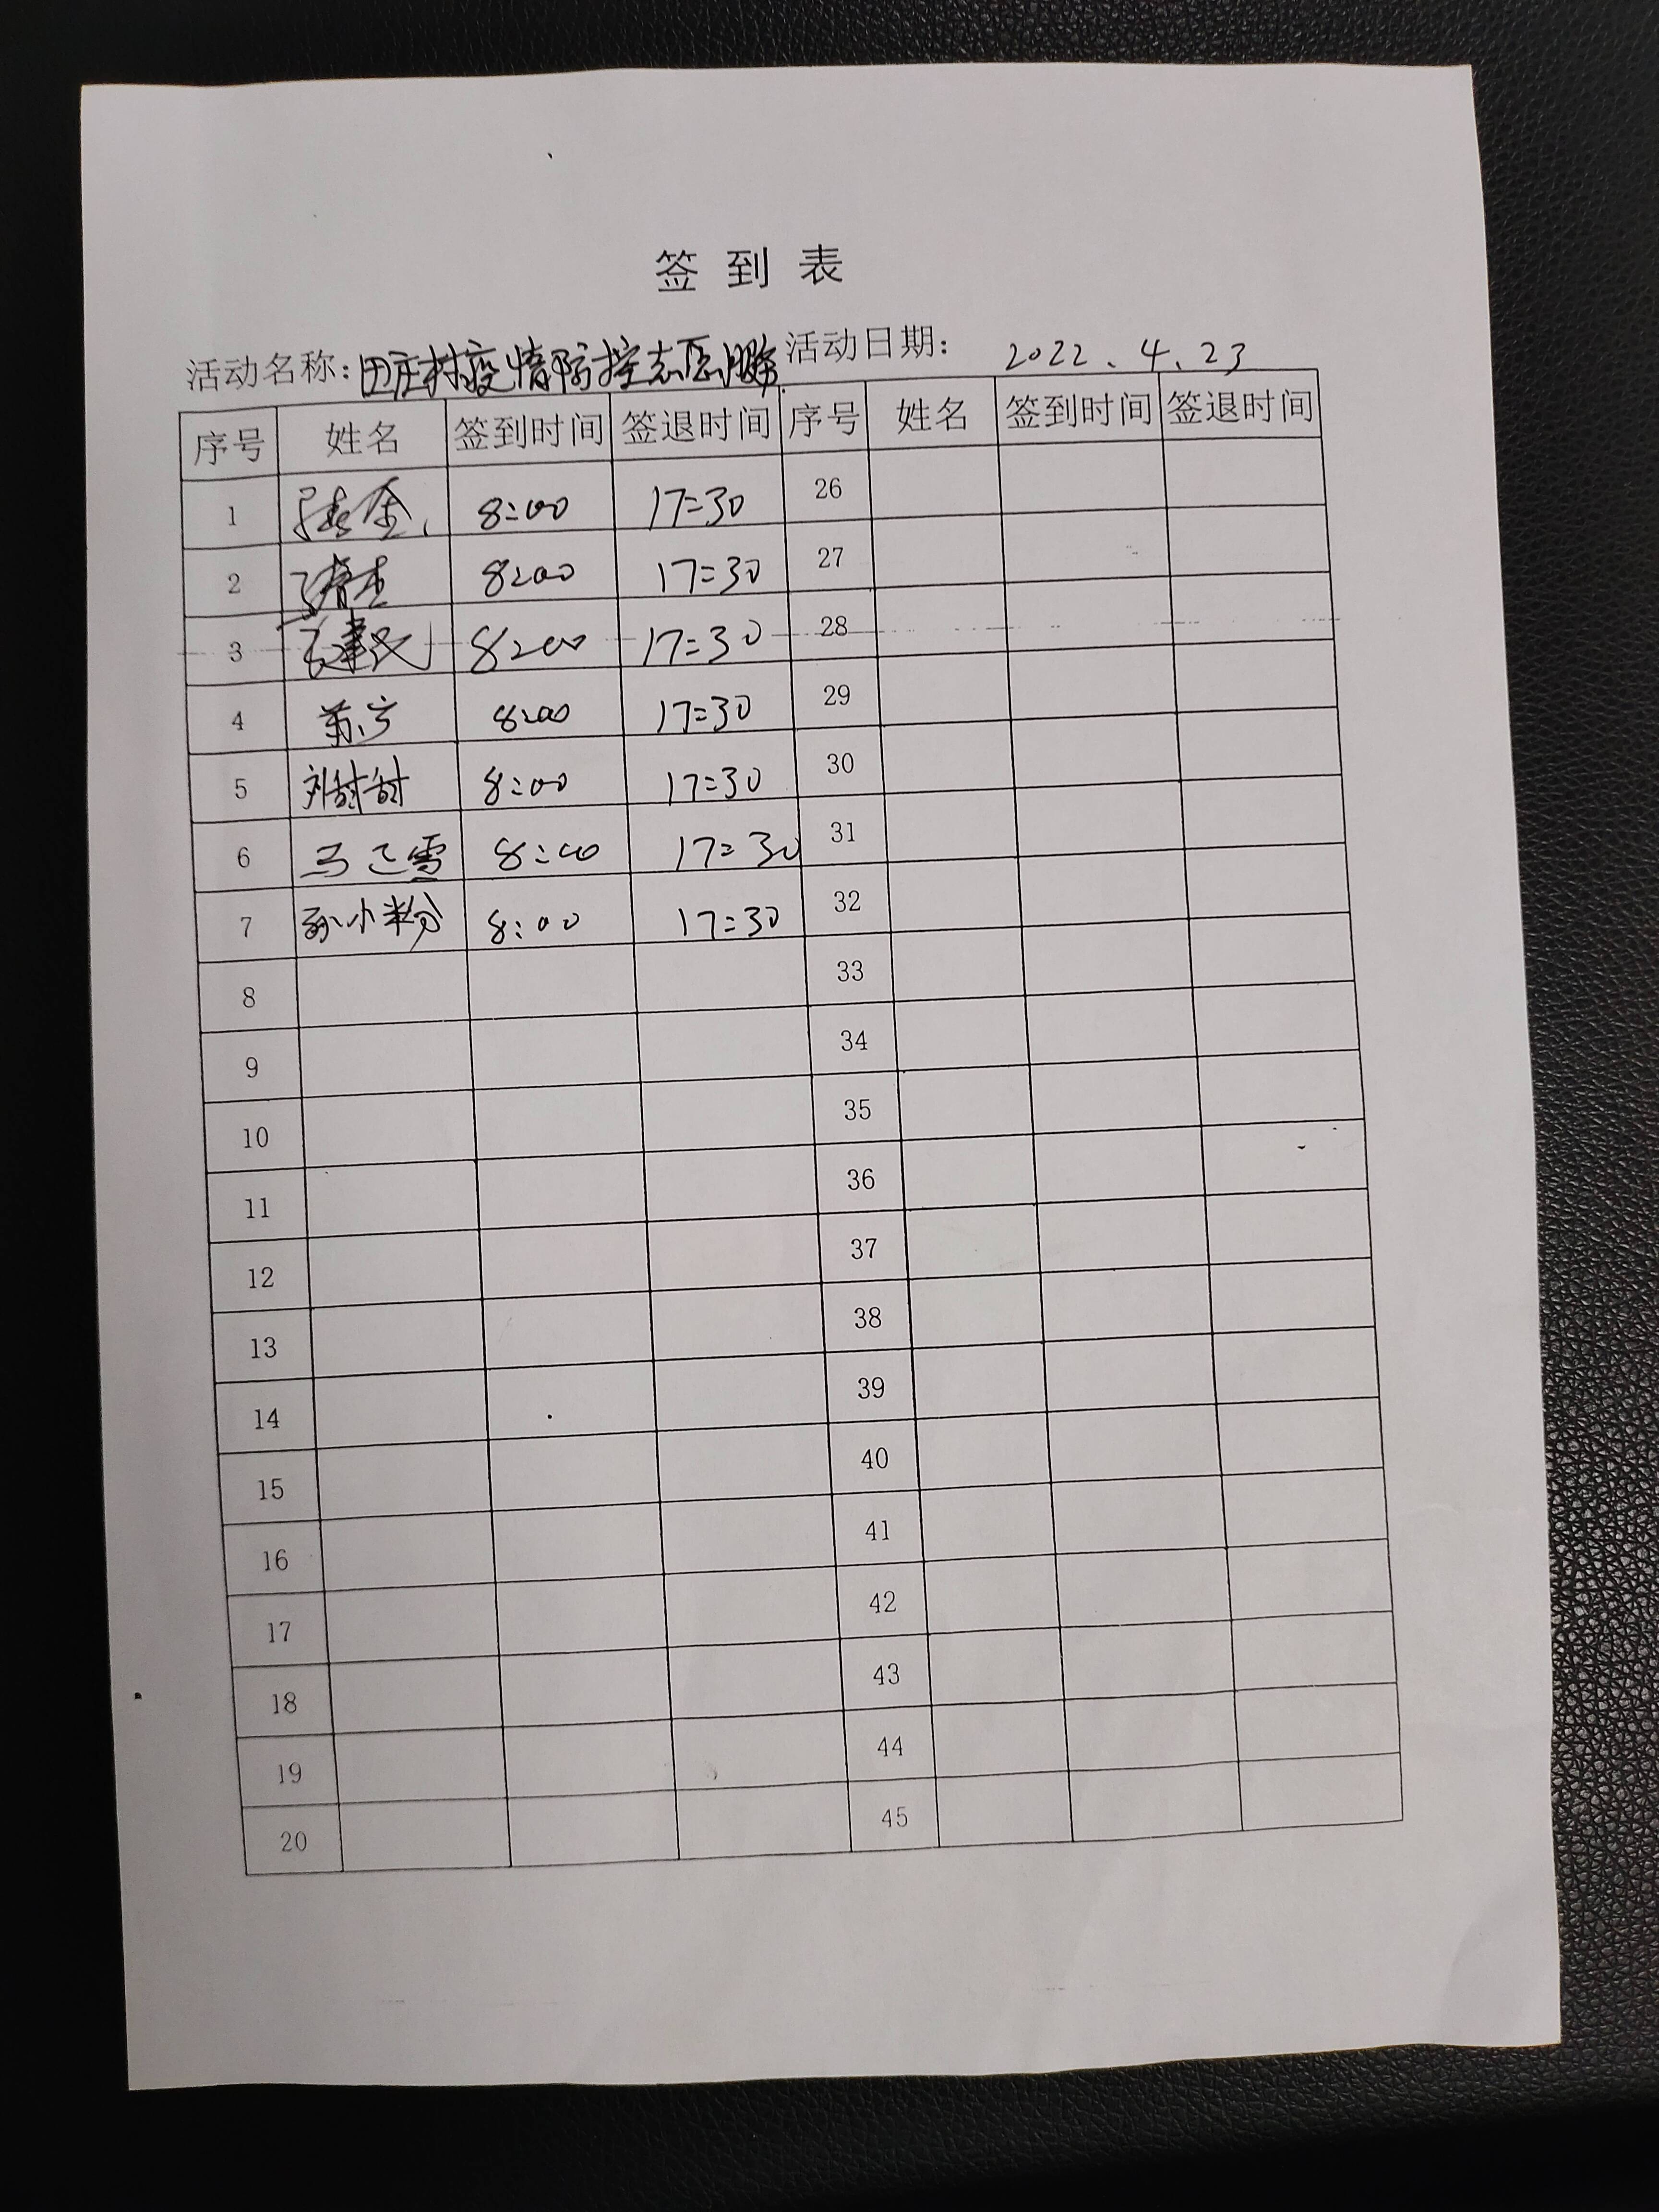 签到表
活动名称: 田庄村疫情防控志愿服务 活动日期: 2022.4.23
序号 姓名 签到时间 签退时间 序号 姓名 签到时间 签退时间
1 8:00 17:30 26
2 8:00 17:30 27
3 建民 8:00 17:30 28
4 8:00 17:30 29
5 刘甜甜 8:00 17:30 30
6 马 雪 8:00 17:30 31
7 孙小粉 8:00 17:30 32
8 33
9 34
10 35
11 36
12 37
13 38
14 39
15 40
16 41
17 42
18 43
19 44
20 45